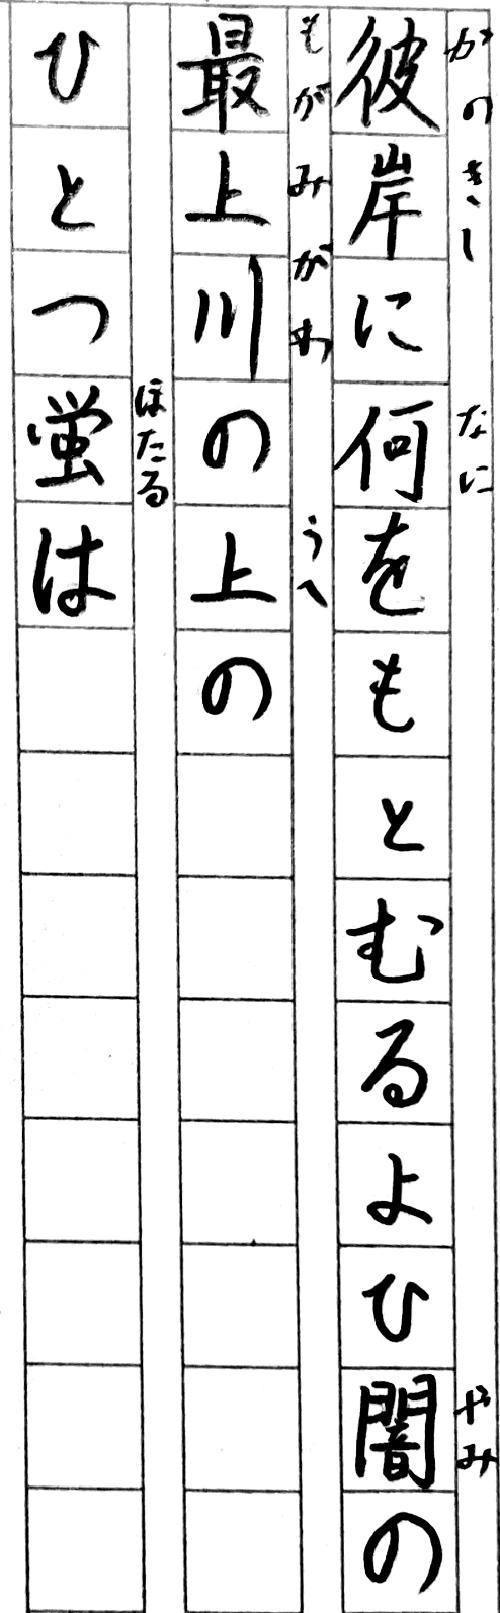 彼岸に何をもとむるよひ闇の
かのきし
なに
やみ
最上川の上の
もがみがわ
うへ
ひとつ蛍は
ほたる